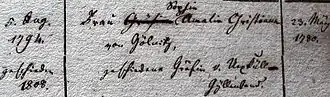 Sophie
5. Aug. Frau Gräfin Amalie Christiane 23. May
1794. von Gölnitz, 1780.
geschieden geschiedene Gräfin v. Uexküll-
1808. Gyllenband.